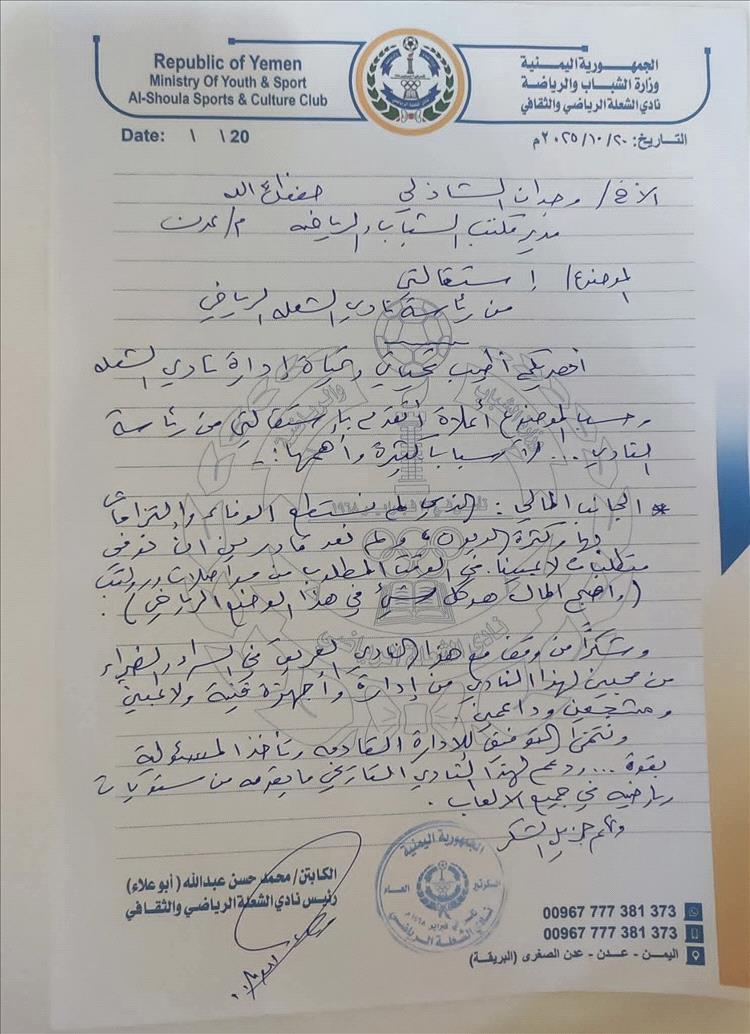 Republic of Yemen
Ministry Of Youth & Sport
Al-Shoula Sports & Culture Club
الجمهورية اليمنية
وزارة الشباب والرياضة
نادي الشعلة الرياضي والثقافي
Date: \ \ 20
التاريخ: ٢٠/١٠/٢٠٢٥م
الأخ/ وجدان الشاذلي حفظك الله
مدير مكتب الشباب والرياضه م/عدن
الموضوع/ إستقالتي
من رئاسة نادي الشعله الرياضي
اهديكم أطيب تحياتي وتحياة إدارة نادي الشعله
وحسب الموضوع أعلاة أتقدم بإستقالتي من رئاسة
النادي ... لأسباباً كثيرة وأهمها:ـ
* الجانب المالي: الذي لم نستطع الوفاء وإلتزامات
بها وكثرة الديون، ولم نعد قادرين ان نوفي
متطلبات لاعبينا في الوقت المطلوب من مواصلات ورواتب
(واصبح المال هو كل شيئ في هذا الوضع الرياضي).
وشكراً من وقف مع هذا النادي العريق في السراء والضراء
من محبين لهذا النادي من إدارة وأجهزة فنية ولاعبين
ومشجعين وداعمين.
ونتمنا التوفيق للإدارة القادمه وتأخذ المسئولية
بقوة ... ودعم لهذا النادي التاريخي ما يقدمه من مستويات
رياضيه في جميع الالعاب.
ولكم جزيل الشكر
الكابتن/ محمد حسن عبدالله (أبو علاء)
رئيس نادي الشعلة الرياضي والثقافي
الجمهورية اليمنية
السكرتير
العام
نادي الشعلة الرياضي
00967 777 381 373
00967 777 381 373
اليمن - عدن - عدن الصغرى (البريقة)